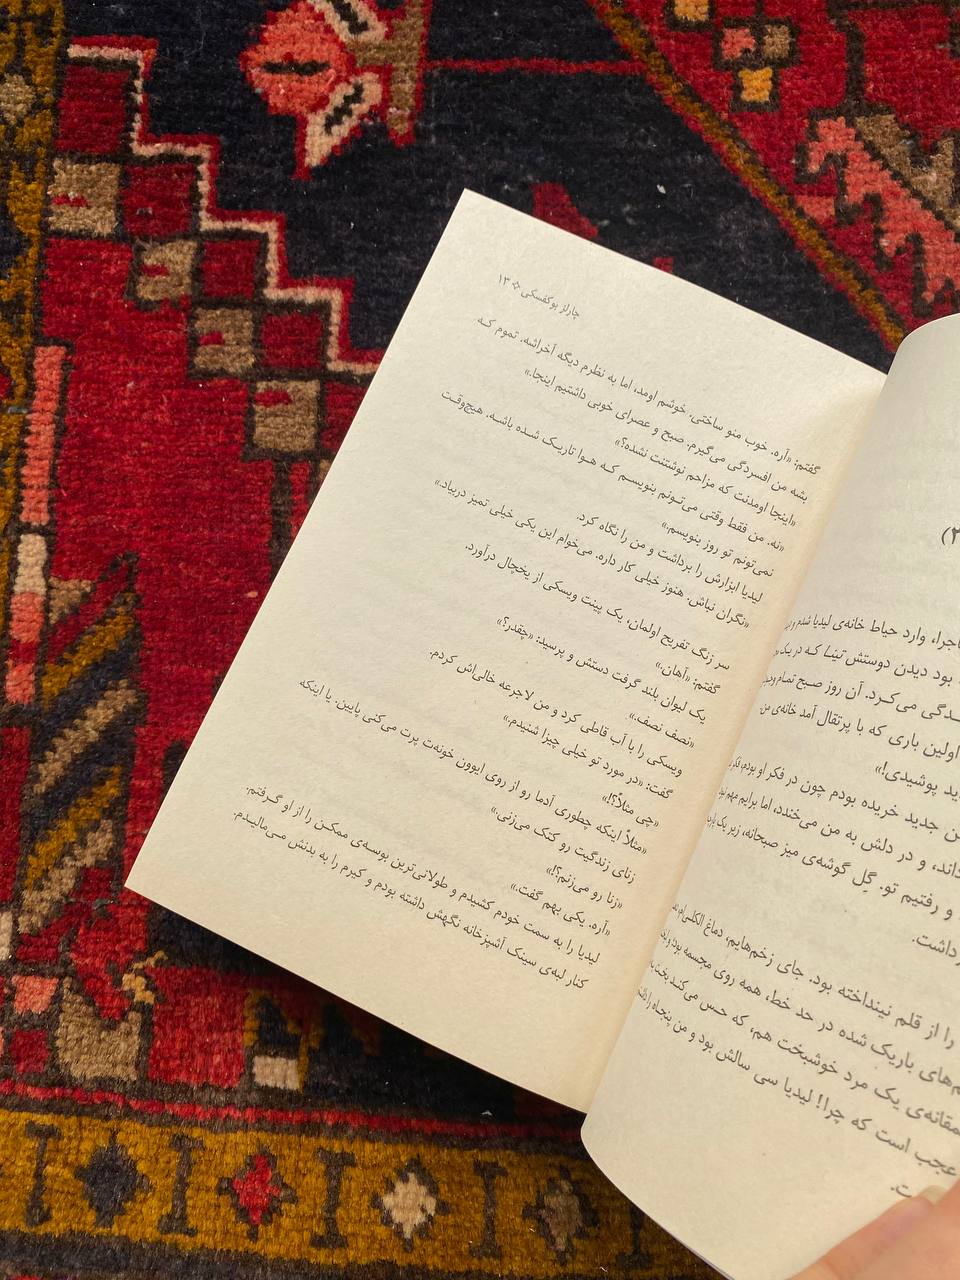 چارلز بوکفسکی ۱۳
گفتم: «آره. خوب منو ساختی. خوشم اومد، اما به نظرم دیگه آخراشه. تموم که
بشه من افسردگی می‌گیرم. صبح و عصرای خوبی داشتیم اینجا.»
«اینجا اومدنت که مزاحم نوشتنت نشده؟»
«نه. من فقط وقتی می‌تونم بنویسم که هوا تاریک شده باشه. هیچ‌وقت
نمی‌تونم تو روز بنویسم.»
لیدیا ابزارش را برداشت و من را نگاه کرد.
«نگران نباش. هنوز خیلی کار داره. می‌خوام این یکی خیلی تمیز دربیاد.»
سر زنگ تفریح اولمان، یک پینت ویسکی از یخچال درآورد.
گفتم: «آهان.»
یک لیوان بلند گرفت دستش و پرسید: «چقدر؟»
«نصف نصف.»
ویسکی را با آب قاطی کرد و من لاجرعه خالی‌اش کردم.
گفت: «در مورد تو خیلی چیزا شنیدم.»
«چی مثلاً؟!»
«مثلاً اینکه چطوری آدما رو از روی ایوون خونه‌ت پرت می‌کنی پایین. یا اینکه
زنای زندگیت رو کتک می‌زنی.»
«زنا رو می‌زنم؟!»
«آره. یکی بهم گفت.»
لیدیا را به سمت خودم کشیدم و طولانی‌ترین بوسه‌ی ممکن را از او گرفتم.
کنار لبه‌ی سینک آشپزخانه نگهش داشته بودم و کیرم را به بدنش می‌مالیدم.
وارد حیاط خانه‌ی لیدیا شدم و
بود دیدن دوستش تینا که در یک
می‌کرد. آن روز صبح تمام
اولین باری که با پرتقال آمد خانه‌ی من.
پوشیدی!»
جدید خریده بودم چون در فکر او بودم،
و در دلش به من می‌خندد، اما برایم مهم
و رفتیم تو. گل گوشه‌ی میز صبحانه، زیر یک
داشت.
را از قلم نینداخته بود. جای زخم‌هایم، دماغ الکلی‌ام،
باریک شده در حد خط، همه روی مجسمه بود؛ و
یک مرد خوشبخت هم، که حس می‌کند
عجب است که چرا! لیدیا سی سالش بود و من پنجاه را